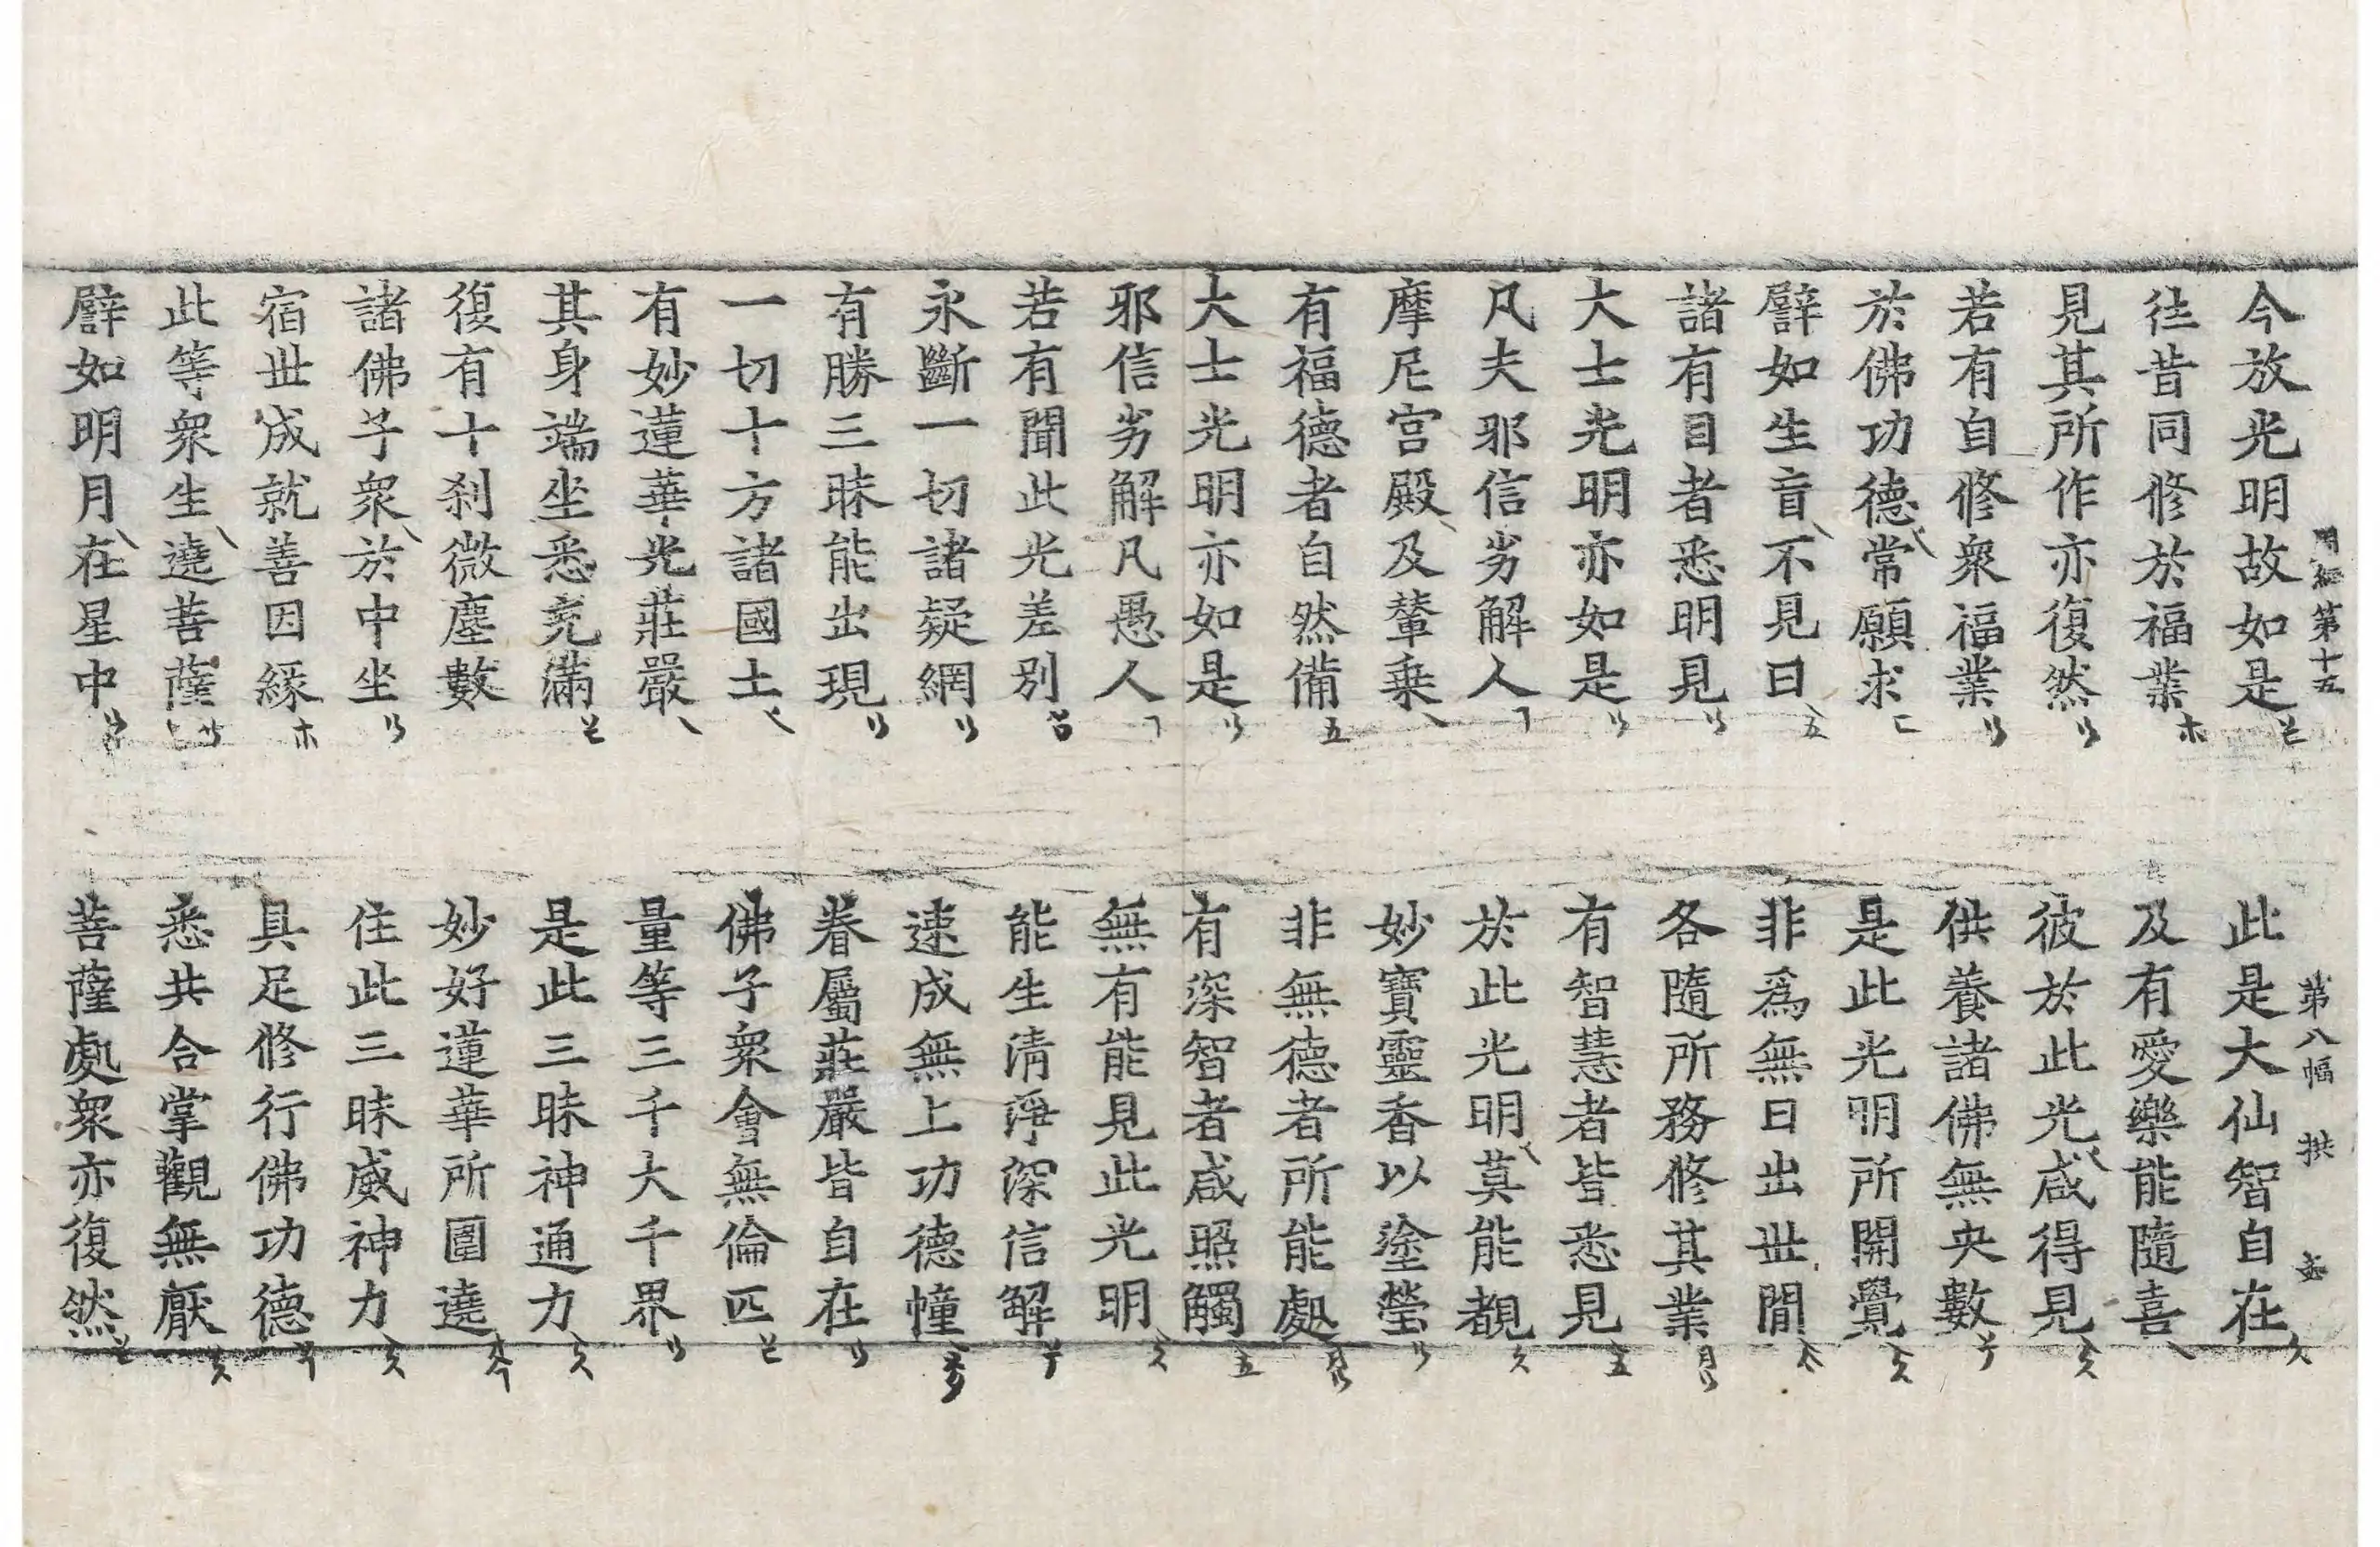 第十五 第八幅 拱
今放光明故如是 此是大仙智自在
往昔同修於福業 及有愛樂能隨喜
見其所作亦復然 彼於此光咸得見
若有自修衆福業 供養諸佛無央數
於佛功德常願求 是此光明所開覺
譬如生盲不見日 非爲無日出世間
諸有目者悉明見 各隨所務修其業
大士光明亦如是 有智慧者皆悉見
凡夫邪信劣解人 於此光明莫能覩
摩尼宮殿及輦乘 妙寶靈香以塗瑩
有福德者自然備 非無德者所能處
大士光明亦如是 有深智者咸照觸
邪信劣解凡愚人 無有能見此光明
若有聞此光差別 能生清淨深信解
永斷一切諸疑網 速成無上功德幢
有勝三昧能出現 眷屬莊嚴皆自在
一切十方諸國土 佛子衆會無倫匹
有妙蓮華光莊嚴 量等三千大千界
其身端坐悉充滿 是此三昧神通力
復有十刹微塵數 妙好蓮華所圍遶
諸佛子衆於中坐 住此三昧威神力
宿世成就善因緣 具足修行佛功德
此等衆生遶菩薩 悉共合掌觀無厭
譬如明月在星中 菩薩處衆亦復然